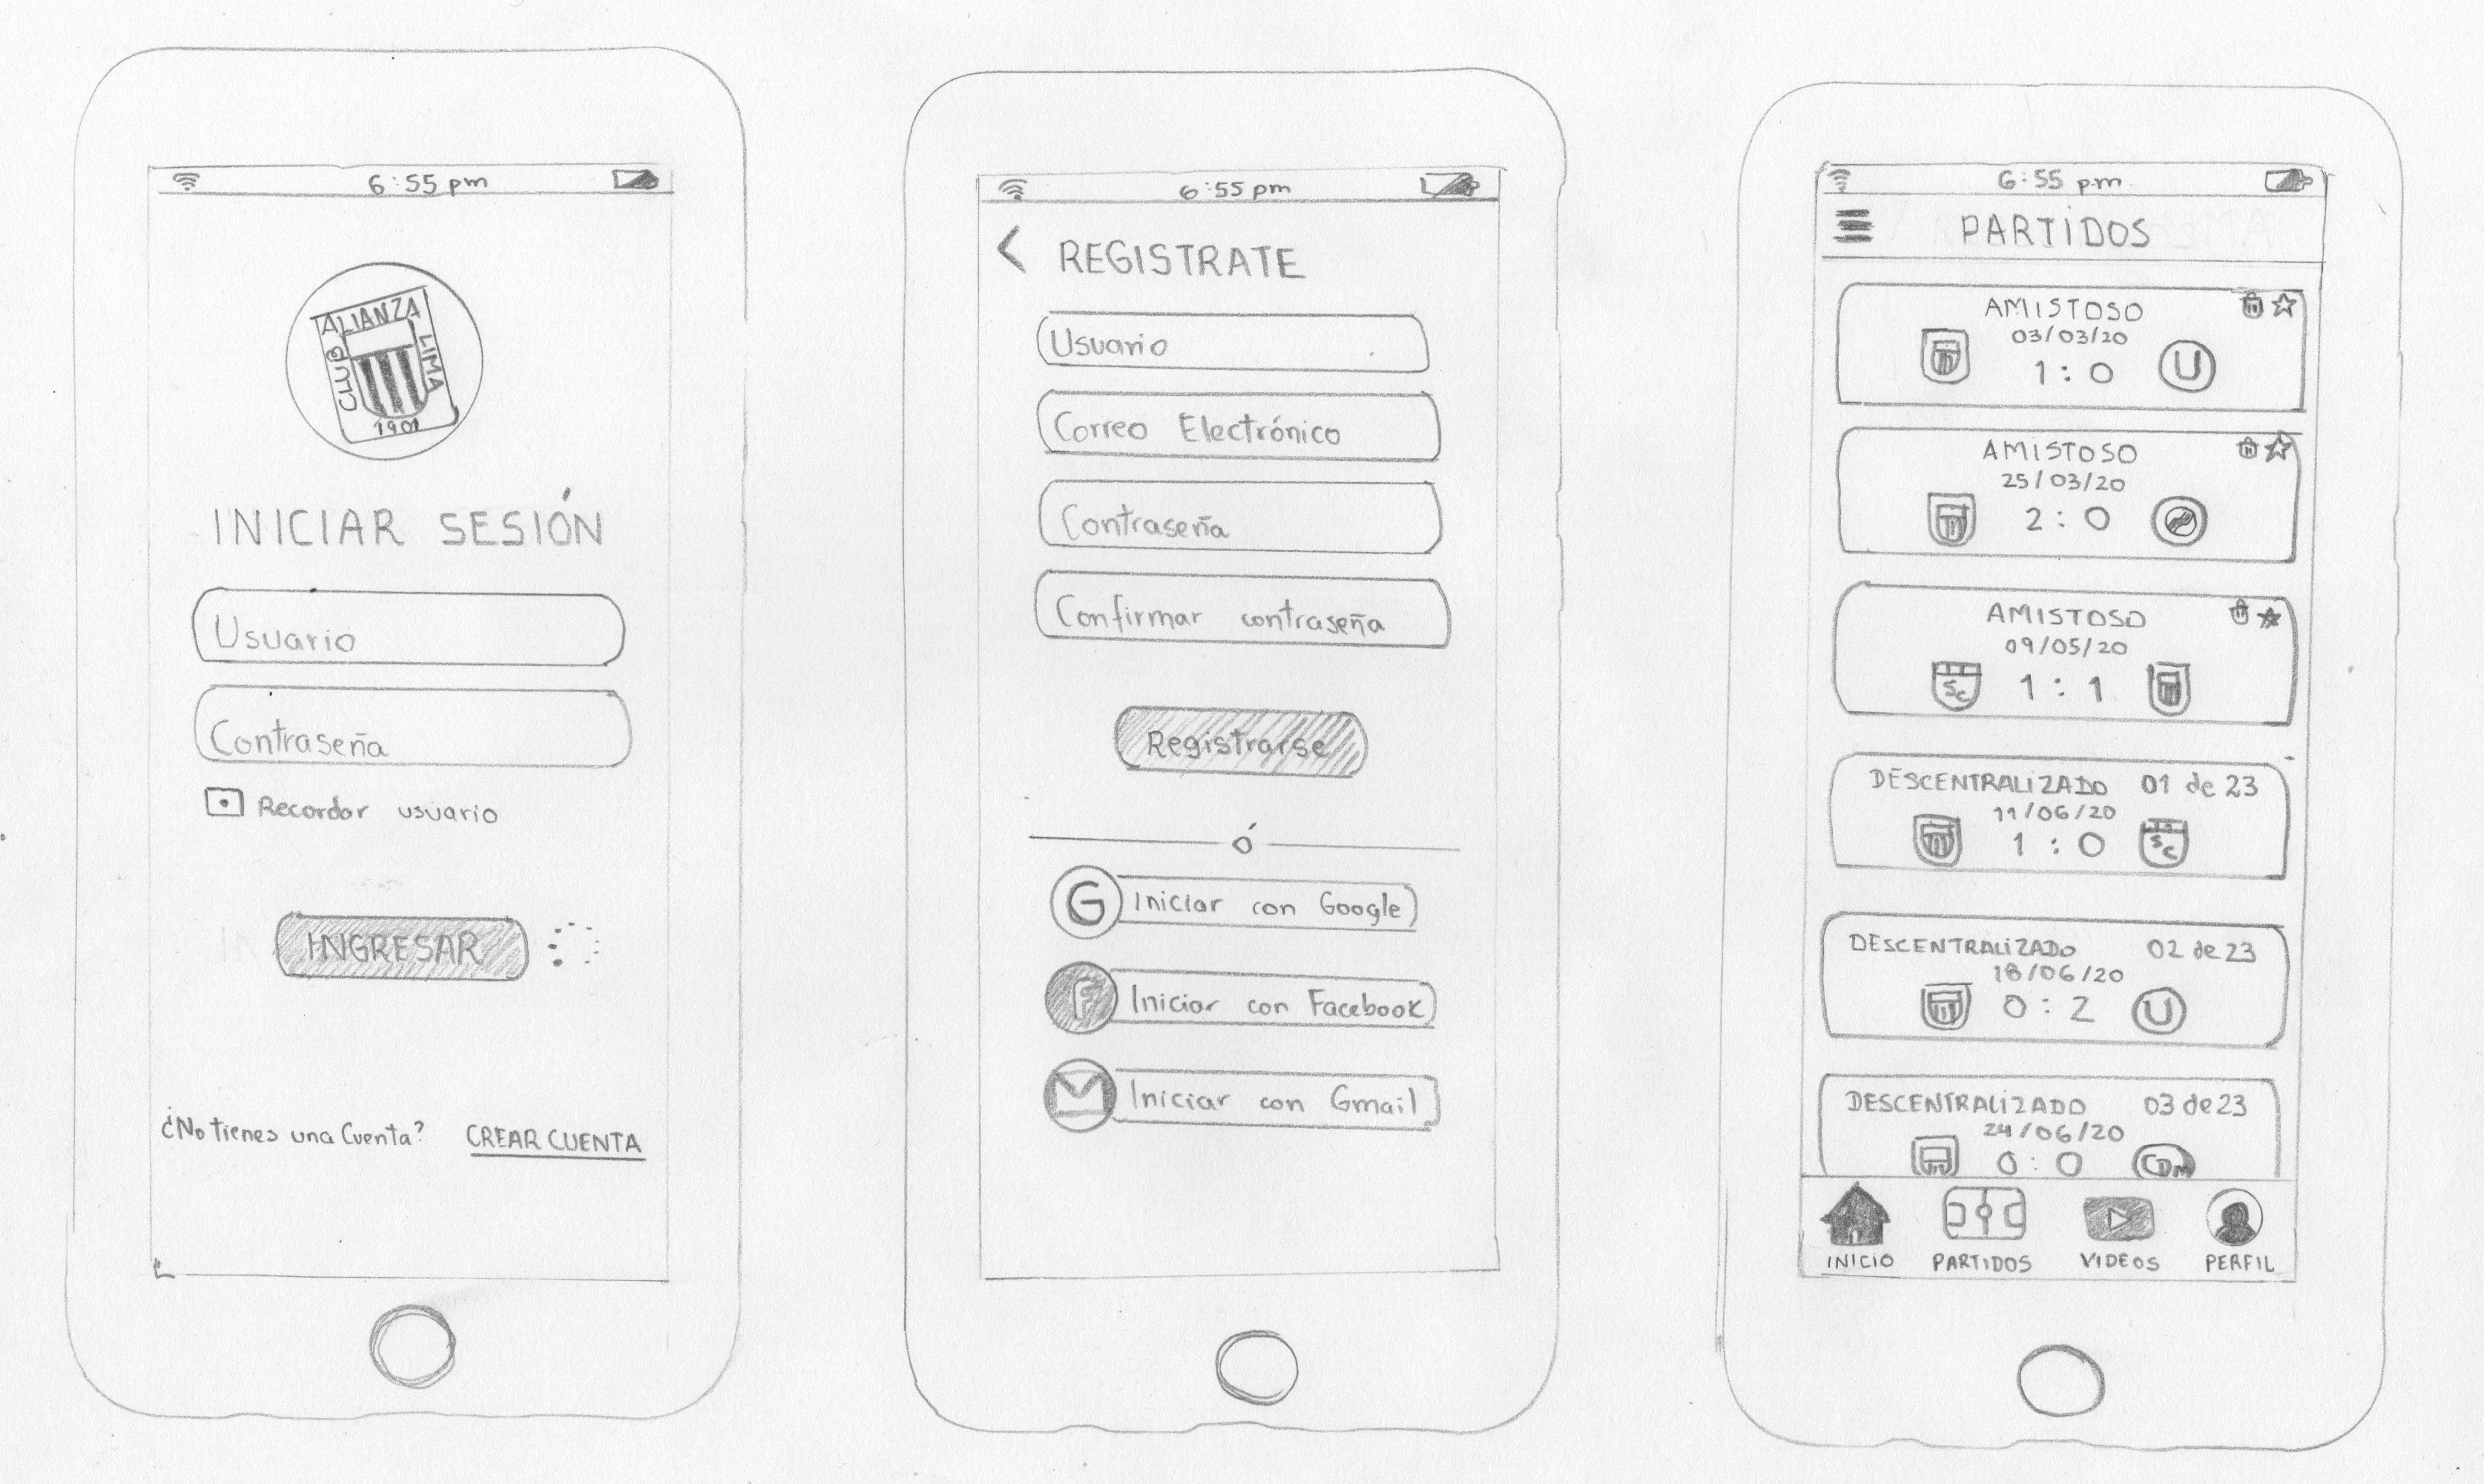 6:55 pm
ALIANZA
LIMA
CLUB
1901
INICIAR SESIÓN
Usuario
Contraseña
Recordar usuario
INGRESAR
¿No tienes una Cuenta? CREAR CUENTA
6:55 pm
< REGISTRATE
Usuario
Correo Electrónico
Contraseña
Confirmar contraseña
Registrarse
ó
G Iniciar con Google
F Iniciar con Facebook
M Iniciar con Gmail
6:55 p.m.
PARTIDOS
AMISTOSO
03/03/20
1 : 0 U
AMISTOSO
25/03/20
2 : 0
AMISTOSO
09/05/20
SC 1 : 1
DESCENTRALIZADO 01 de 23
11/06/20
1 : 0 SC
DESCENTRALIZADO 02 de 23
18/06/20
0 : 2 U
DESCENTRALIZADO 03 de 23
24/06/20
0 : 0 CDM
INICIO PARTIDOS VIDEOS PERFIL